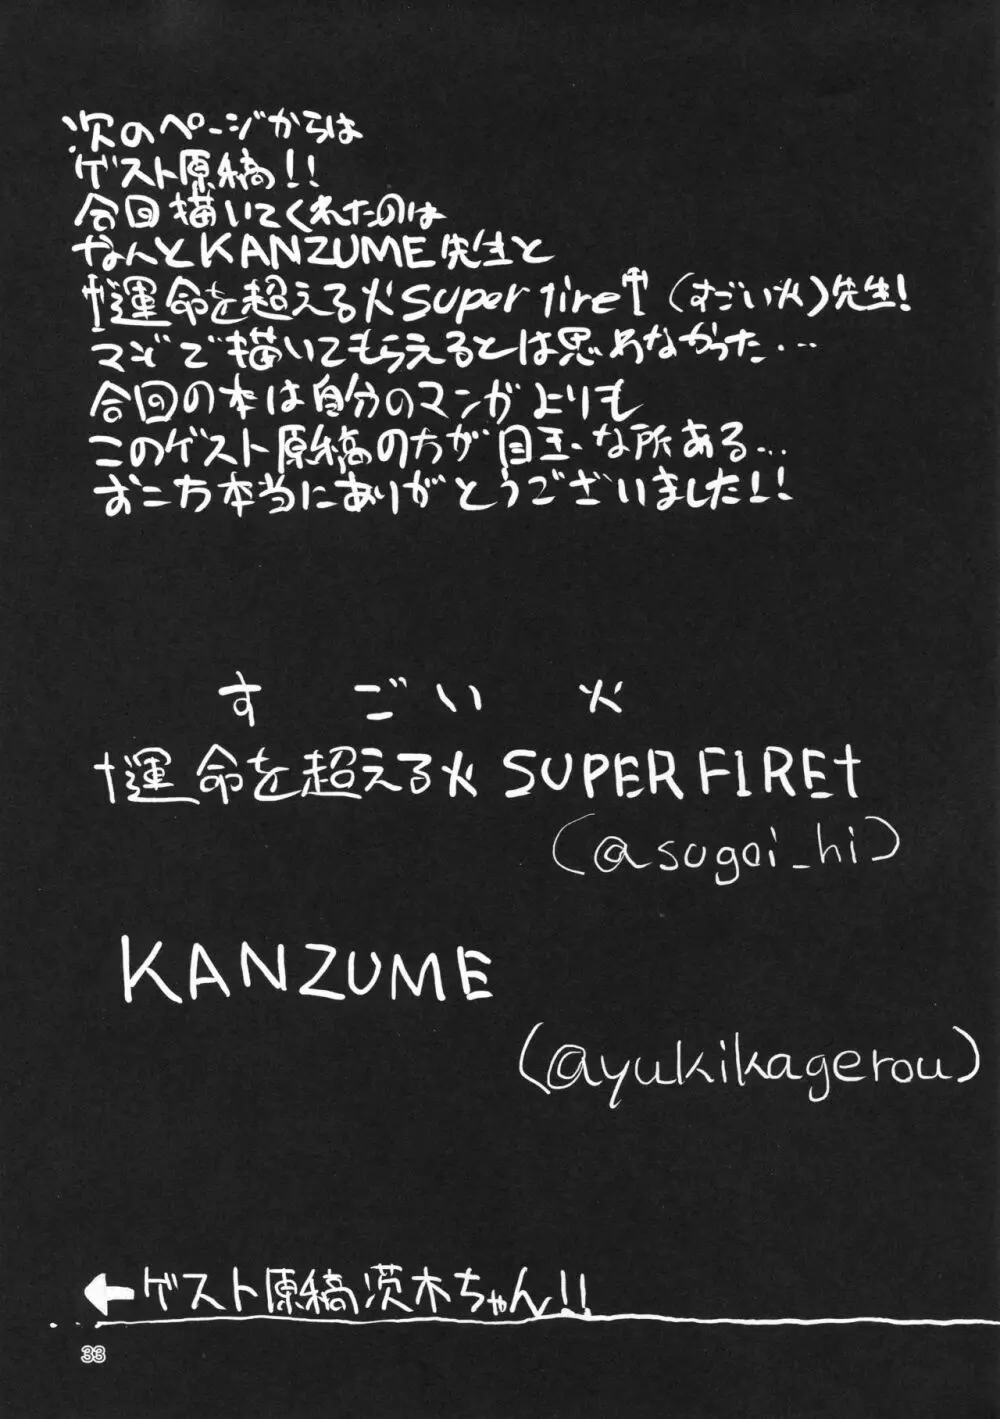 次のページからは
ゲスト原稿!!
今回描いてくれたのは
なんとKANZUME先生と
†運命を超える火super fire†(すごい火)先生!
マジで描いてもらえるとは思わなかった…
今回の本は自分のマンガよりも
このゲスト原稿の方が目玉な所ある…
お二方本当にありがとうございました!!
すごい火
†運命を超える火SUPER FIRE†
(@sugoi_hi)
KANZUME
(@ayukikagerou)
←ゲスト原稿茨木ちゃん!!
33